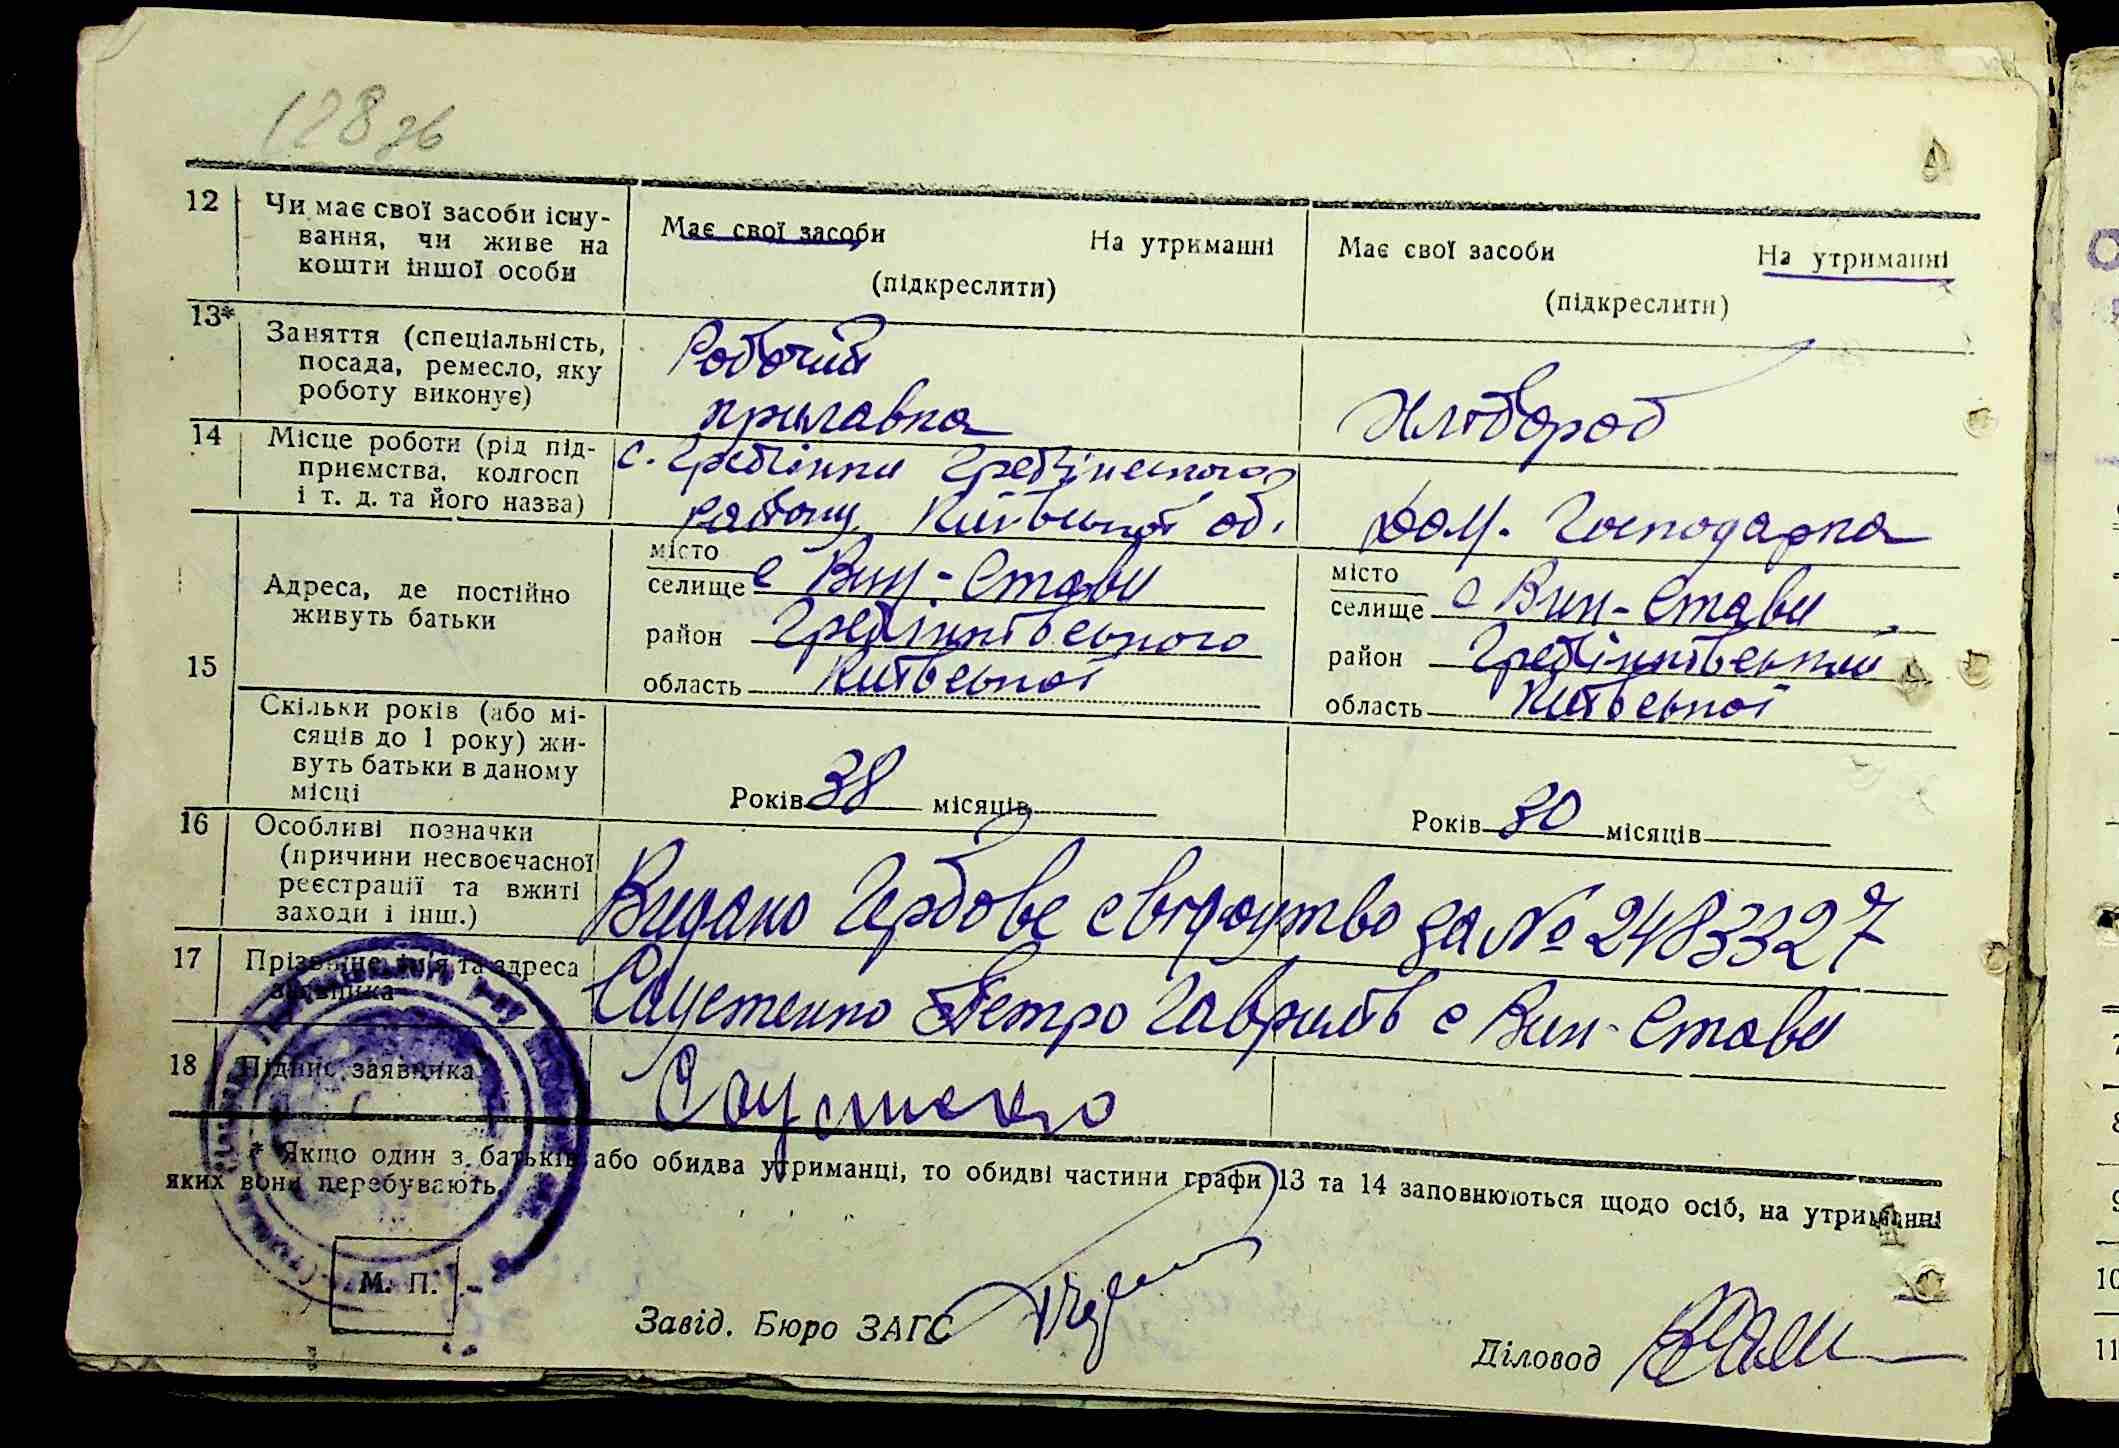 128 зв
12 Чи має свої засоби існу-
вання, чи живе на
кошти іншої особи
Має свої засоби На утриманні
(підкреслити)
Має свої засоби На утриманні
(підкреслити)
13* Заняття (спеціальність,
посада, ремесло, яку
роботу виконує)
Робочий
прилавка
Хлібороб
14 Місце роботи (рід під-
приємства, колгосп
і т. д. та його назва)
с. Гребінки Гребінського
району Київської об.
Дом. Господарка
15 Адреса, де постійно
живуть батьки
місто
селище с Вин-Стави
район Гребінківського
область Київської
місто
селище с Вин-Стави
район Гребінківський
область Київської
Скільки років (або мі-
сяців до 1 року) жи-
вуть батьки в даному
місці
Років 38 місяців
Років 30 місяців
16 Особливі позначки
(причини несвоєчасної
реєстрації та вжиті
заходи і інш.)
Видано Гербове свідоцтво за № 2483327
17 Прізвище, ім'я та адреса
заявника
Саустенко Петро Гаврилів с Вин-Стави
18 Підпис заявника
Саустенко
* Якщо один з батьків або обидва утриманці, то обидві частини графи 13 та 14 заповнюються щодо осіб, на утриманні
яких вони перебувають.
М. П.
Завід. Бюро ЗАГС
Діловод